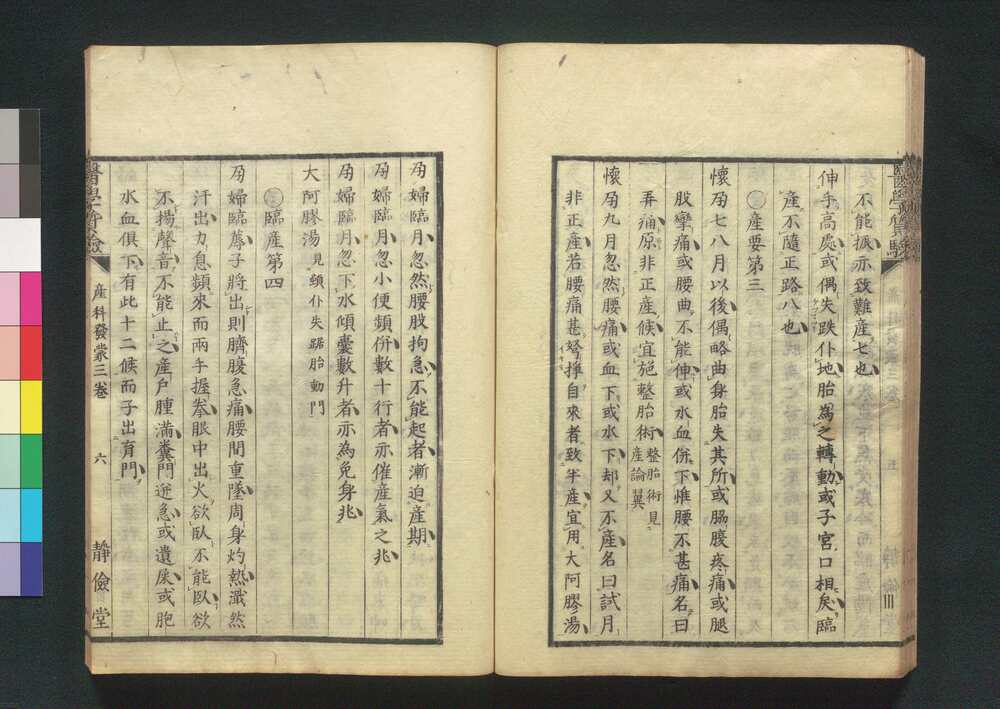 不能振亦致難産七也
伸手高處或偶失跌仆地胎爲之轉動或子宮口相戾臨
産不隨正路八也
産要第三
懷孕七八月以後偶略曲身胎失其所或腸腹疼痛或腿
股攣痛或腰曲不能伸或水血併下惟腰不甚痛名曰
弄痛原非正産候宜施整胎術整胎術見
産論翼
懷孕九月忽然腰痛或血下或水下却又不産名曰試月
非正産若腰痛甚努掙自來者致半産宜用大阿膠湯
孕婦臨月忽然腰股拘急不能起者漸迫産期
孕婦臨月忽小便頻併數十行者亦催産氣之兆
孕婦臨月忽下水傾囊數升者亦為免身兆
大阿膠湯見顛仆失踞胎動門
臨産第四
孕婦臨蓐子將出則臍腹急痛腰間重墜周身灼熱濈然
汗出力息頻來而兩手握拳眼中出火欲臥不能臥欲
不揚聲音不能止之産戶腫滿糞門迸急或遺屎或胞
水血俱下有此十二候而子出育門
産科發蒙三卷
六
靜儉堂